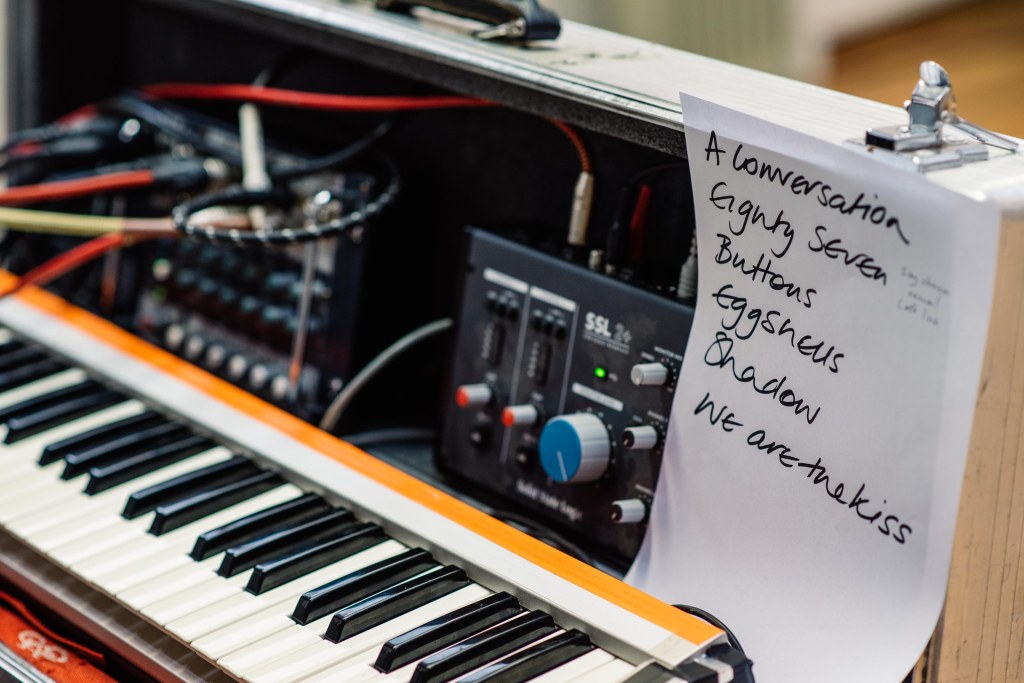 A Conversation
Eighty Seven
Buttons
Eggshells
Shadow
We are the kiss
SSL 2+
Solid State Logic